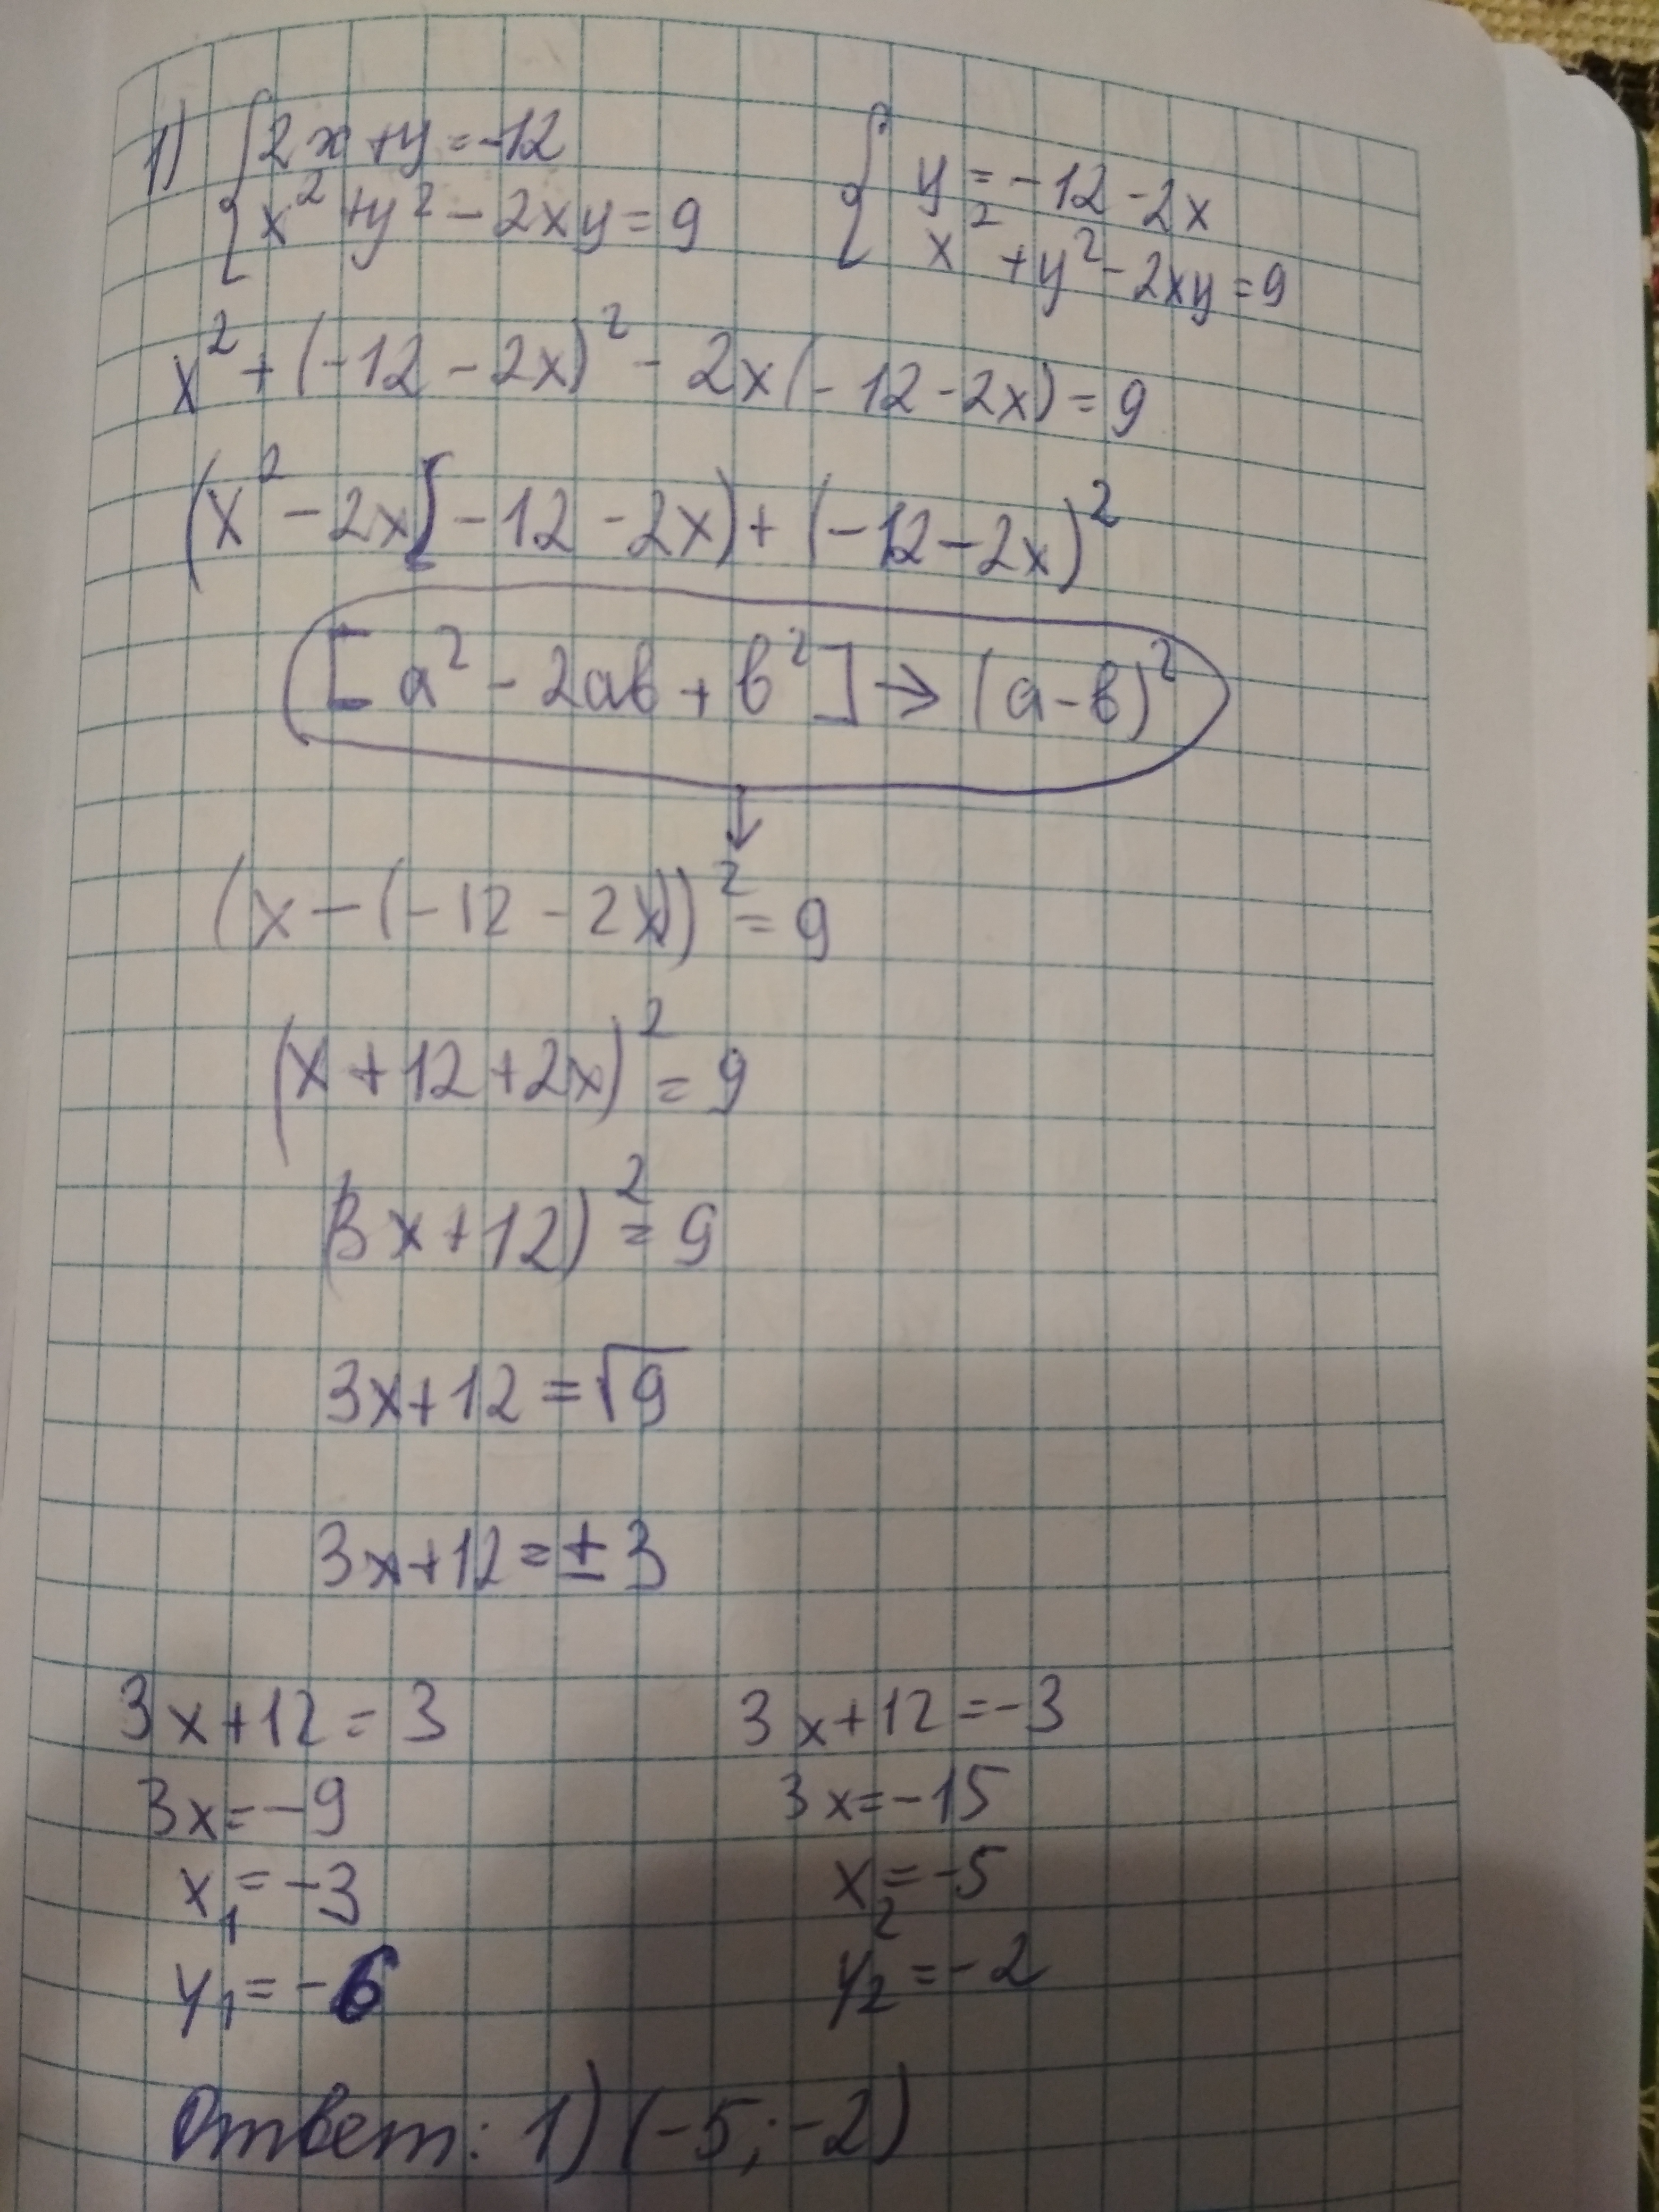 1) { 2x + y = -12 { y = -12 - 2x
x² + y² - 2xy = 9 x² + y² - 2xy = 9
x² + (-12 - 2x)² - 2x(-12 - 2x) = 9
(x² - 2x[-12 - 2x) + (-12 - 2x)²
[a² - 2ab + b²] → (a - b)²
↓
(x - (-12 - 2x))² = 9
(x + 12 + 2x)² = 9
(3x + 12)² = 9
3x + 12 = √9
3x + 12 = ± 3
3x + 12 = 3 3x + 12 = -3
3x = -9 3x = -15
x₁ = -3 x₂ = -5
y₁ = -6 y₂ = -2
Ответ: 1) (-5; -2)